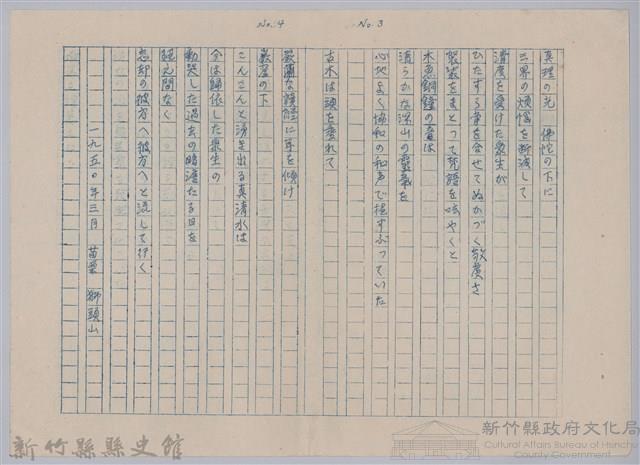 No.3
真理の光 佛陀の下に
三界の煩悩を断滅して
済度を受けた衆生が
ひたすら掌を合せてぬかづく敬虔さ
袈裟をまとって梵語を呟やくと
木魚銅鐘の音は
清らかな深山の霊氣を
心地よく協和の和声で揺すぶっていた
古木は頭を垂れて
No.4
荘厳な読経に耳を傾け
巖窟の下
こんこんと湧き出る真清水は
今は歸依した衆生の
動哭した過去の暗澹たる日を
絶え間なく
忘却の彼方へ彼方へと流して行く
一九五〇年三月 苗栗 獅頭山
新竹縣縣史館
新竹縣政府文化局
Cultural Affairs Bureau of Hsinchu
County Government